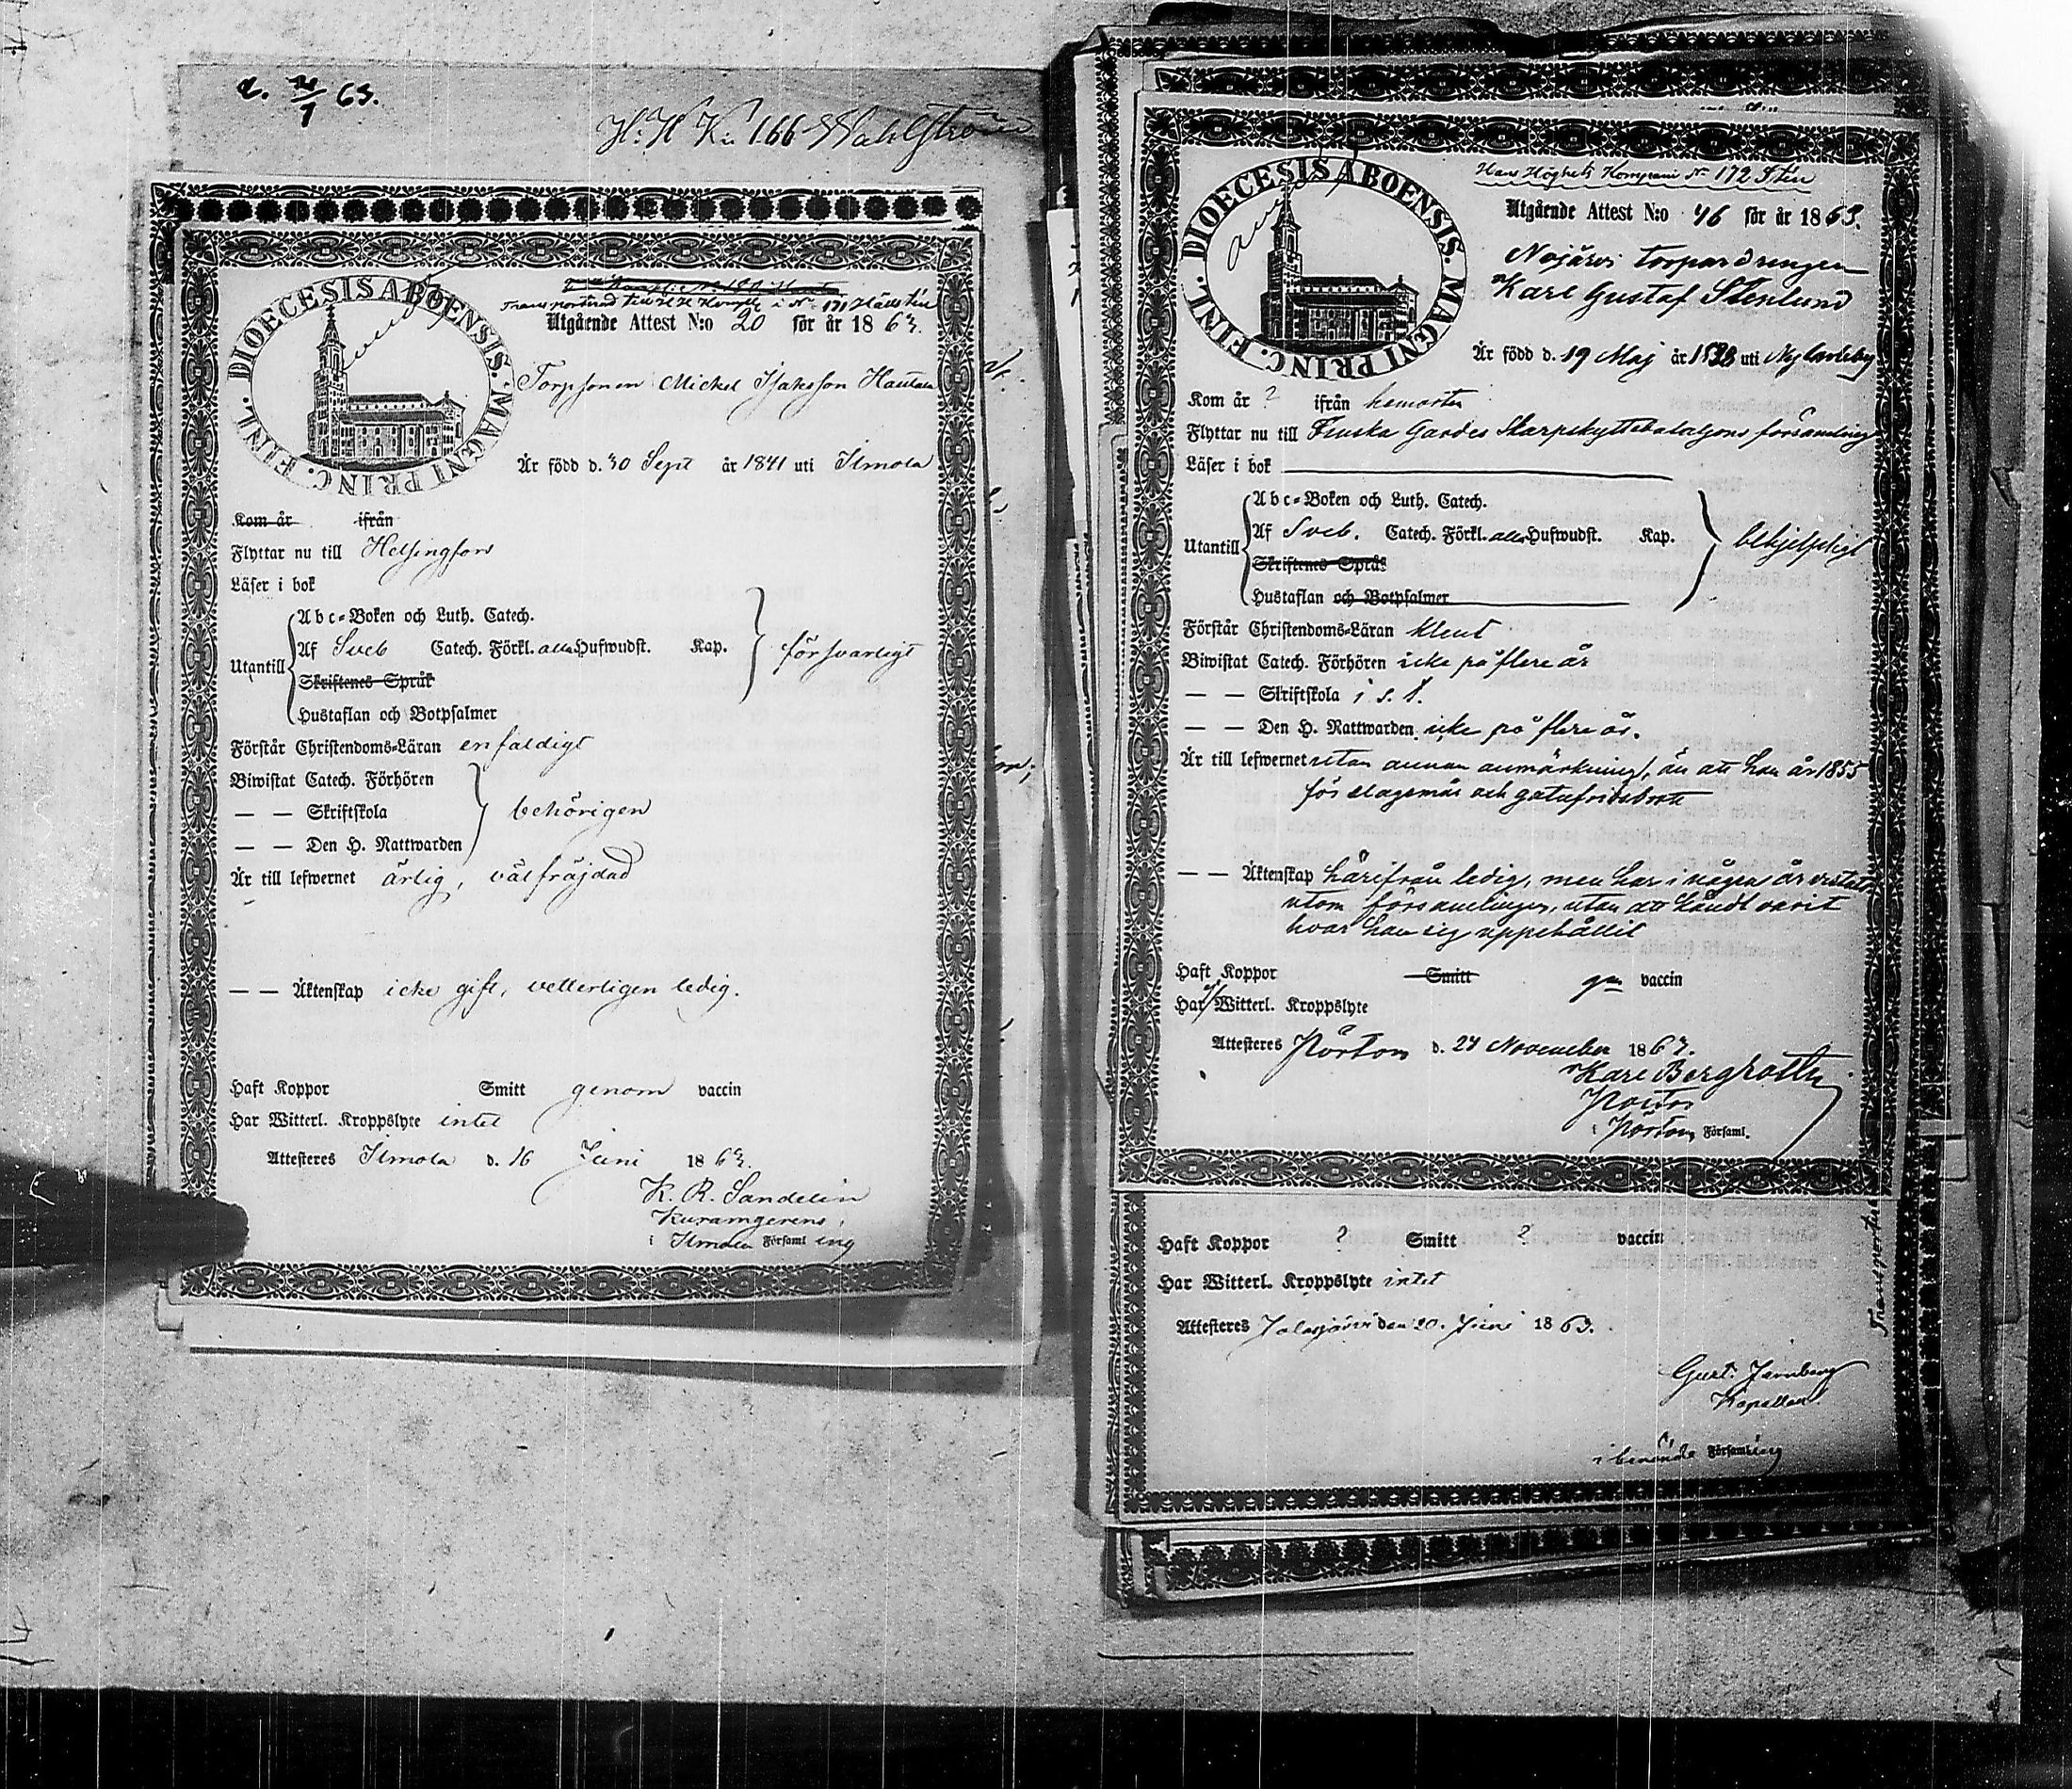 H. H. K. 166 Wahlström
DIOECESIS ABOENSIS. MAGNI PRINC. FINL.
Utgående Attest N:o 20 för år 1863.
Torpsonen Mickel Isaksson
Är född d. 30 Sept år 1841 uti Ilmola
Kom år ifrån
Flyttar nu till Helsingfors
Läser i bok
Abc-Boken och Luth. Catech.
Utantill Af Sveb Catech. Förkl. alla Hufwudst. Kap. försvarligt
Skriftenes Språk
Hustaflan och Botpsalmer
Förstår Christendoms-Läran enfaldigt
Biwistat Catech. Förhören
— — Skriftskola behörigen
— — Den H. Nattwarden
Är till lefwernet ärlig, välfräjdad
— — Äktenskap icke gift, vetterligen ledig.
Haft Koppor Smitt genom vaccin
Har Witterl. Kroppslyte intet
Attesteres Ilmola d. 16 Juni 1863.
K. R. Sandelin
i Ilmola Församling
Hans Höghets Kompani N:o 172 Sten
DIOECESIS ABOENSIS. MAGNI PRINC. FINL.
Utgående Attest N:o 46 för år 1863.
Nojärvi torpardrengen
Karl Gustaf Stenlund
Är född d. 19 Maj år 1838 uti Nykarleby
Kom år ? ifrån hemorten
Flyttar nu till Finska Gardes Skarpskyttebataljons församling
Läser i bok
Abc-Boken och Luth. Catech.
Utantill Af Sveb. Catech. Förkl. alla Hufwudst. Kap. behjelpligt
Skriftenes Språk
Hustaflan och Botpsalmer
Förstår Christendoms-Läran klent
Biwistat Catech. Förhören icke på flere år
— — Skriftskola i s. t.
— — Den H. Nattwarden icke på flere år.
Är till lefwernet utan annan anmärkning, än att han år 1855
för slagsmål och gatufridsbrott
— — Äktenskap härifrån ledig, men har i några år vistats
utom församlingen, utan att kändt varit
hvar han sig uppehållit
Haft Koppor Smitt gm vaccin
Har ej Witterl. Kroppslyte
Attesteres Pörtom d. 24 November 1863.
Karl Bergroth
Pastor
i Pörtom Församl.
Haft Koppor ? Smitt ? vaccin
Har Witterl. Kroppslyte intet
Attesteres Jalasjärvi den 20. Juni 1863.
Gust. Järnberg
Kapellan
i benämde Församling